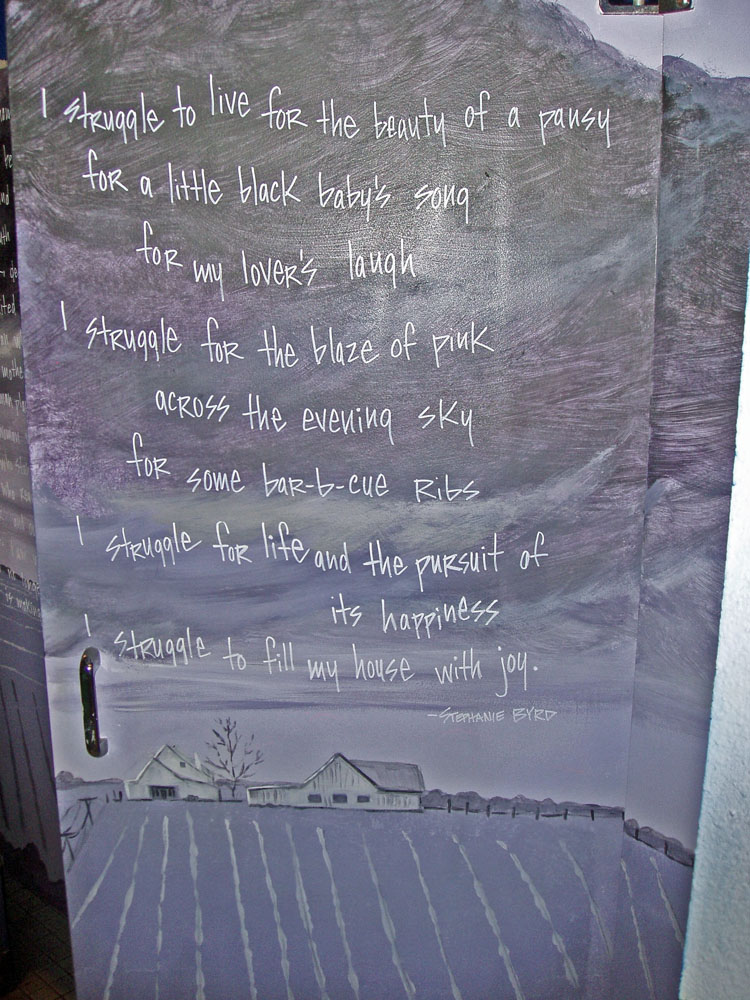 I struggle to live for the beauty of a pansy
for a little black baby's song
for my lover's laugh
I struggle for the blaze of pink
across the evening sky
for some bar-b-cue ribs
I struggle for life and the pursuit of
its happiness
I struggle to fill my house with joy.
-STEPHANIE BYRD